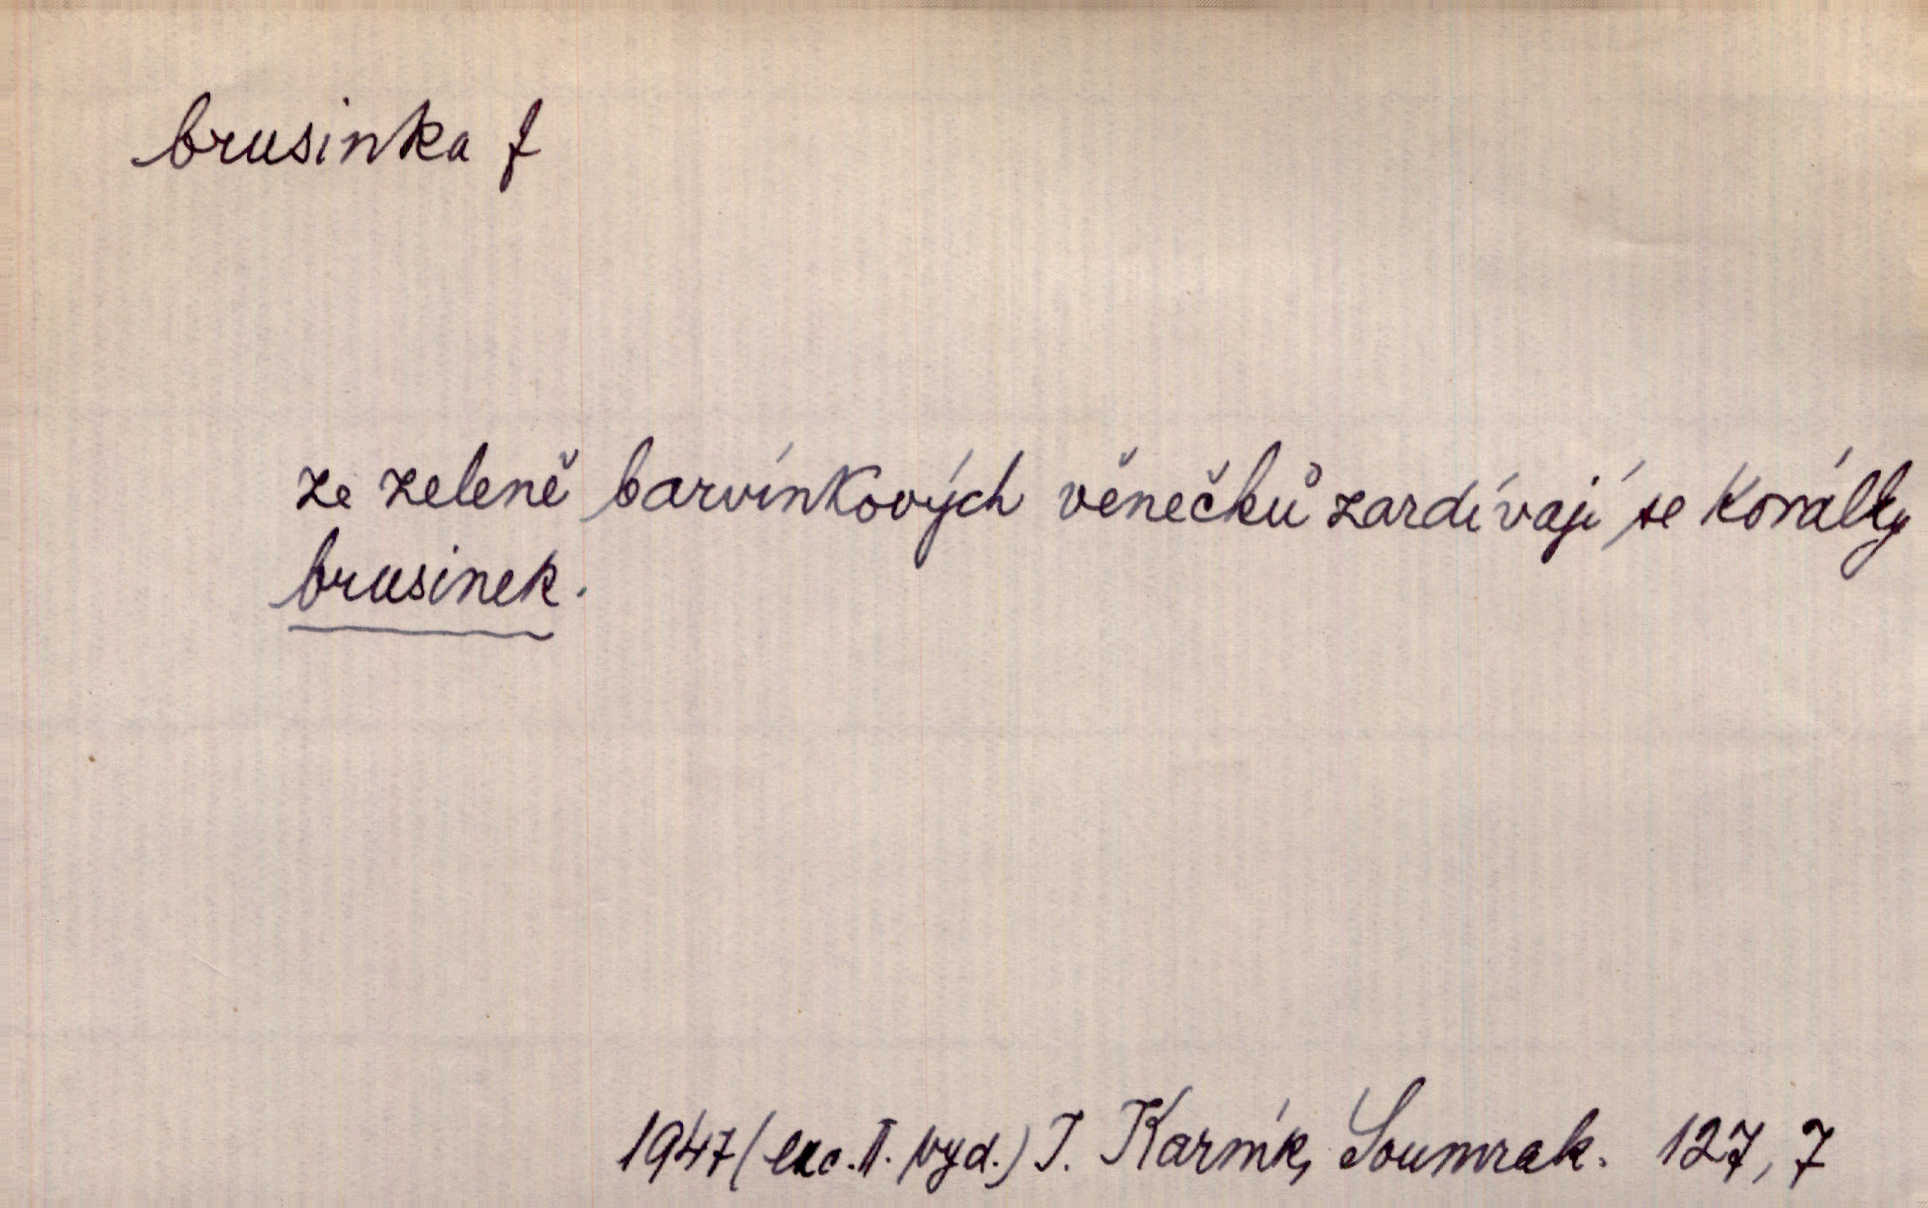 brusinka f
ze zeleně barvínkových věnečků zardívají se korálky
brusinek.
1947 (exc. II. vyd.) J. Karník, Soumrak. 127, 7